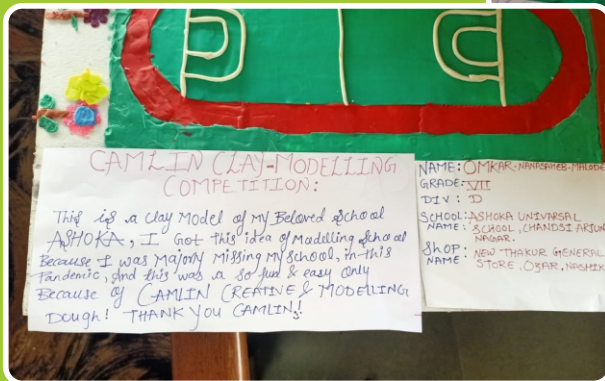 CAMLIN CLAY-MODELLING
COMPETITION:
This is a Clay Model of My Beloved School
ASHOKA, I Got this idea of Modelling School
Because I was Majorly Missing My School, in this
Pandemic, and this was a so fun & easy only
Because of CAMLIN CREATIVE & MODELLING
Dough! THANK YOU CAMLIN!
NAME: OMKAR-NANASAHEB-MALODE
GRADE: VII
DIV: D
SCHOOL: ASHOKA UNIVARSAL
NAME: SCHOOL, CHANDSI ARJUN
NAGAR.
Shop: NEW THAKUR GENERAL
NAME: STORE. OZAR, NASHIK